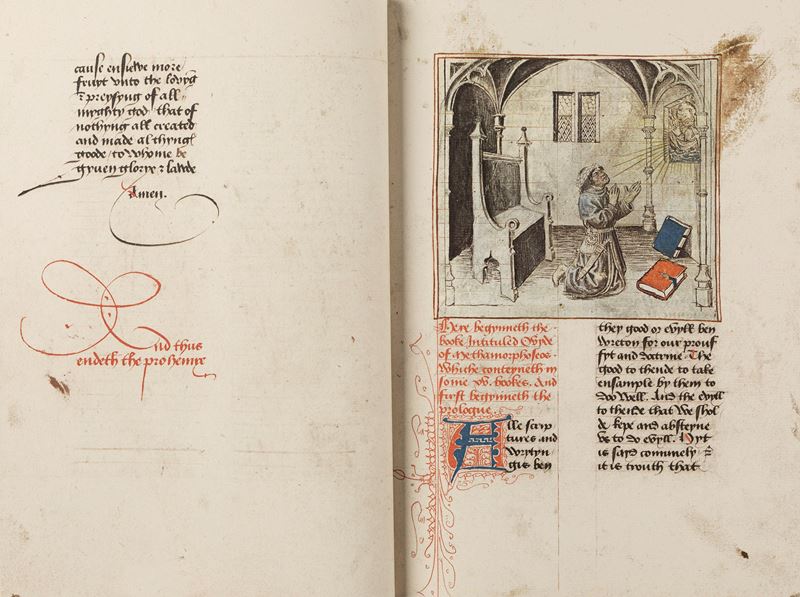 cause ensiewe more
fruyt vnto the lovyng
⁊ preysyng of all
myghty god / that of
nothyng all created
and made al thyng
goode / to whome be
gyuen glorye ⁊ lawde
Amen.
And thus
endeth the prohemye
Here begynneth the
booke Intituled Ovyde
of Methamorphoseos
Whiche conteyneth in
some xv. bookes. And
first begynneth the
prologue
Alle scrip
tures and
wrytyn
gis ben
they good or evyll ben
wreton for our prouf
fyt and doctrine. The
good to thende to take
ensample by them to
do well. And the evyll
to thende that we shol
de kepe and absteyne
vs to do evyll. Hyt
is sayd comunely ⁊
it is trouth that